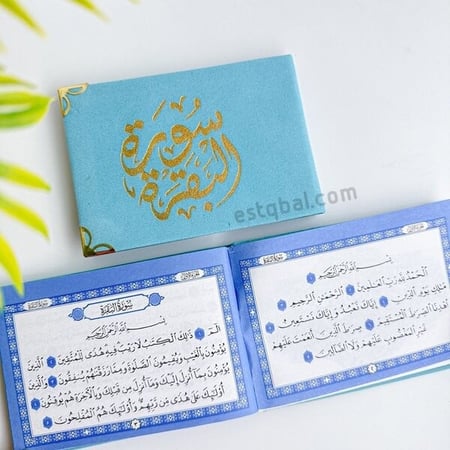 سورة
البقرة
estqbal.com
بسم الله الرحمن الرحيم
الحمد لله رب العلمين
الرحمن الرحيم
ملك يوم الدين إياك نعبد وإياك نستعين
اهدنا الصرط المستقيم صرط الذين أنعمت عليهم
غير المغضوب عليهم ولا الضالين
٢
سورة البقرة
بسم الله الرحمن الرحيم
الم ذلك الكتب لا ريب فيه هدى للمتقين الذين
يؤمنون بالغيب ويقيمون الصلوة ومما رزقنهم ينفقون والذين
يؤمنون بما أنزل إليك وما أنزل من قبلك وبالآخرة هم يوقنون
أولئك على هدى من ربهم وأولئك هم المفلحون
٣